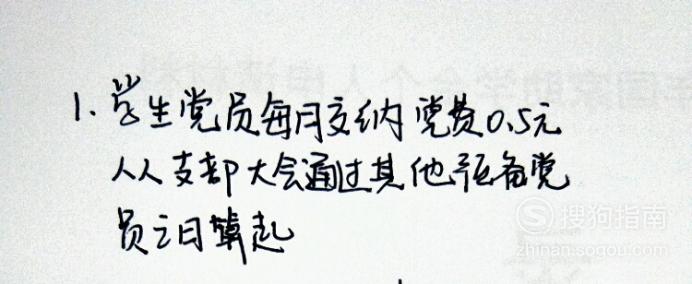 1. 学生党员每月交纳党费0.5元
人人支部大会通过其他预备党
员之日算起
搜狗指南
zhinan.sogou.com